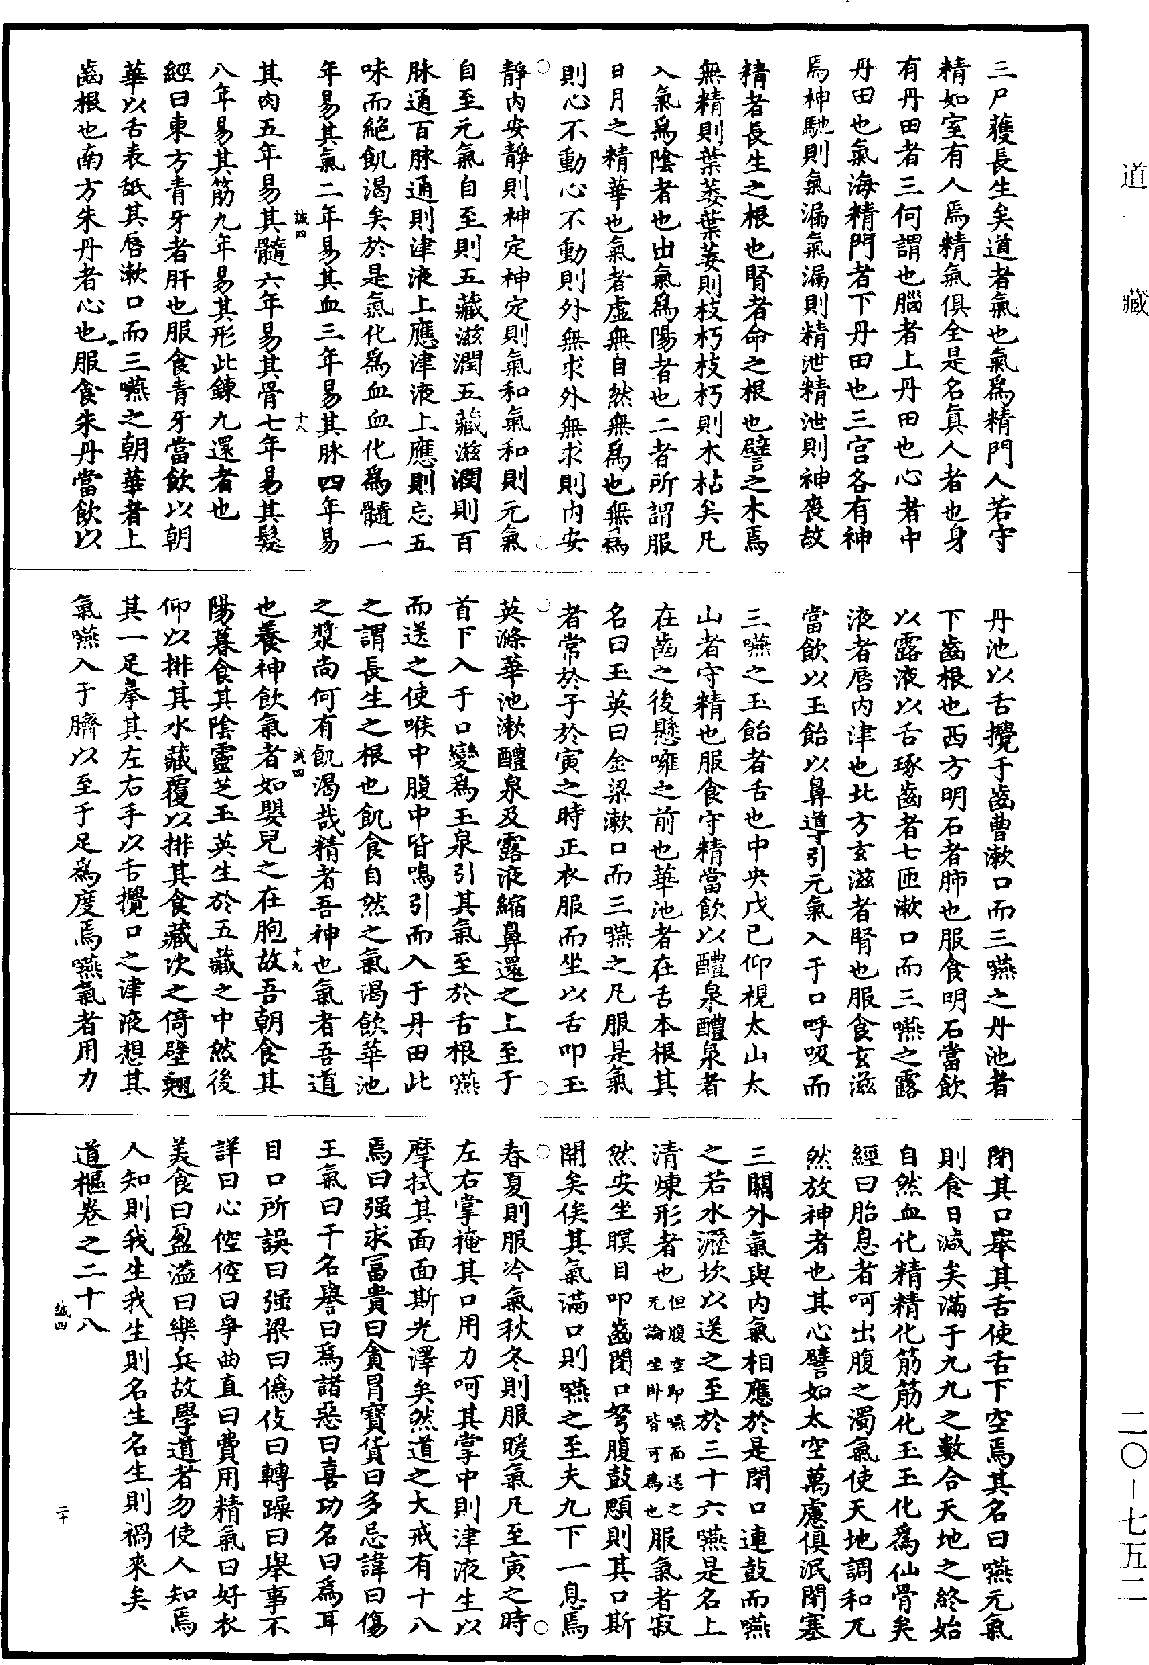 道藏
三尸蔭長生矣道者氣也氣爲精門人若守
精如室有人焉精氣俱全是名真人者也身
有丹田者三何謂也腦者上丹田也心者中
丹田也氣海精門者下丹田也三宫各有神
焉神馳則氣漏氣漏則精泄精泄則神喪故
精者長生之根也腎者命之根也譬之木焉
無精則葉萎葉萎則枝朽枝朽則木枯矣凡
入氣爲陰者也出氣爲陽者也二者所謂服
日月之精華也氣者虛無自然無爲也無爲
則心不動心不動則外無求外無求則内安
靜内安靜則神定神定則氣和氣和則元氣
自至元氣自至則五藏滋潤五藏滋潤則百
脉通百脉通則津液上應津液上應則忘五
味而絶飢渴矣於是氣化爲血血化爲髓一
年易其氣二年易其血三年易其脉四年易
誠四
十八
其肉五年易其髓六年易其骨七年易其髮
八年易其筋九年易其形此鍊九還者也
經曰東方青牙者肝也服食青牙當飲以朝
華以舌表舐其唇漱口而三嚥之朝華者上
齒根也南方朱丹者心也服食朱丹當飲以
丹池以舌攪于齒曹漱口而三嚥之丹池者
下齒根也西方明石者肺也服食明石當飲
以露液以舌琢齒者七匝漱口而三嚥之露
液者唇内津也北方玄滋者腎也服食玄滋
當飲以玉飴以鼻導引元氣入于口呼吸而
三嚥之玉飴者舌也中央戊己仰視太山太
山者守精也服食守精當飲以醴泉醴泉者
在齒之後懸癰之前也華池者在舌本根其
名曰玉英曰金梁漱口而三嚥之凡服是氣
者常於子於寅之時正衣服而坐以舌叩玉
英滌華池漱醴泉及露液縮鼻還之上至于
首下入于口變爲玉泉引其氣至於舌根嚥
而送之使喉中腹中皆鳴引而入于丹田此
之謂長生之根也飢食自然之氣渴飲華池
之漿尚何有飢渴哉精者吾神也氣者吾道
誠四
十九
也養神飲氣者如嬰兒之在胞故吾朝食其
陽暮食其陰靈芝玉英生於五藏之中然後
仰以排其水藏覆以排其食藏次之倚壁翹
其一足拳其左右手以舌攪口之津液想其
氣嚥入于臍以至于足爲度焉嚥氣者用力
閉其口舉其舌使舌下空焉其名曰嚥元氣
則食日減矣滿于九九之數合天地之終始
自然血化精精化筋筋化玉玉化爲仙骨矣
經曰胎息者呵出腹之濁氣使天地調和兀
然放神者也其心譬如太空萬慮俱泯閉塞
三關外氣與内氣相應於是閉口連鼓而嚥
之若水瀝坎以送之至於三十六嚥是名上
清煉形者也但腹空即嚥而送之无論坐卧皆可爲也服氣者寂
然安坐瞑目叩齒閉口弩腹鼓顋則其口斯
開矣俟其氣滿口則嚥之至夫九下一息焉
春夏則服冷氣秋冬則服暖氣凡至寅之時
左右掌掩其口用力呵其掌中則津液生以
摩拭其面面斯光澤矣然道之大戒有十八
焉曰强求冨貴曰貪冒寶貨曰多忌諱曰傷
王氣曰干名譽曰爲諸惡曰喜功名曰爲耳
目口所誤曰强梁曰僞伎曰轉躁曰舉事不
詳曰心悾悾曰爭曲直曰費用精氣曰好衣
美食曰盈溢曰樂兵故學道者勿使人知焉
人知則我生我生則名生名生則禍來矣
道樞卷之二十八
誠四
二十
二〇—七五二